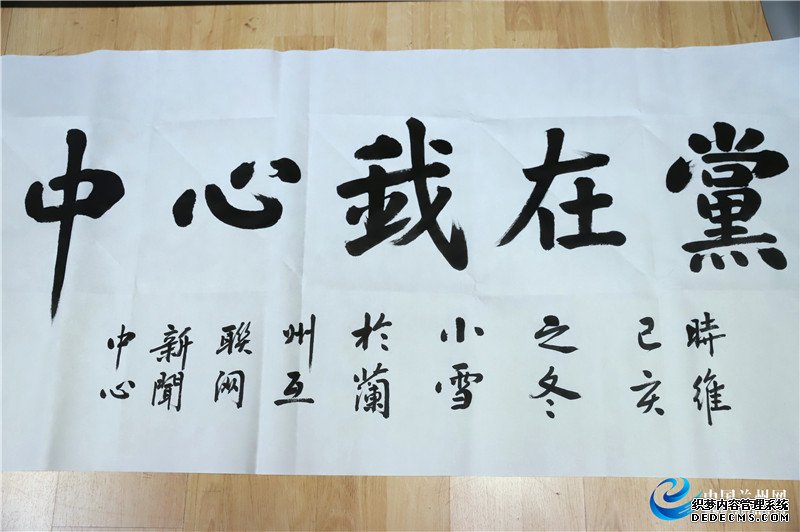 黨在我心中
時維
己亥
之冬
小雪
於蘭
州互
聯網
新聞
中心
中国兰州网
织梦内容管理系统
DEDECMS.COM